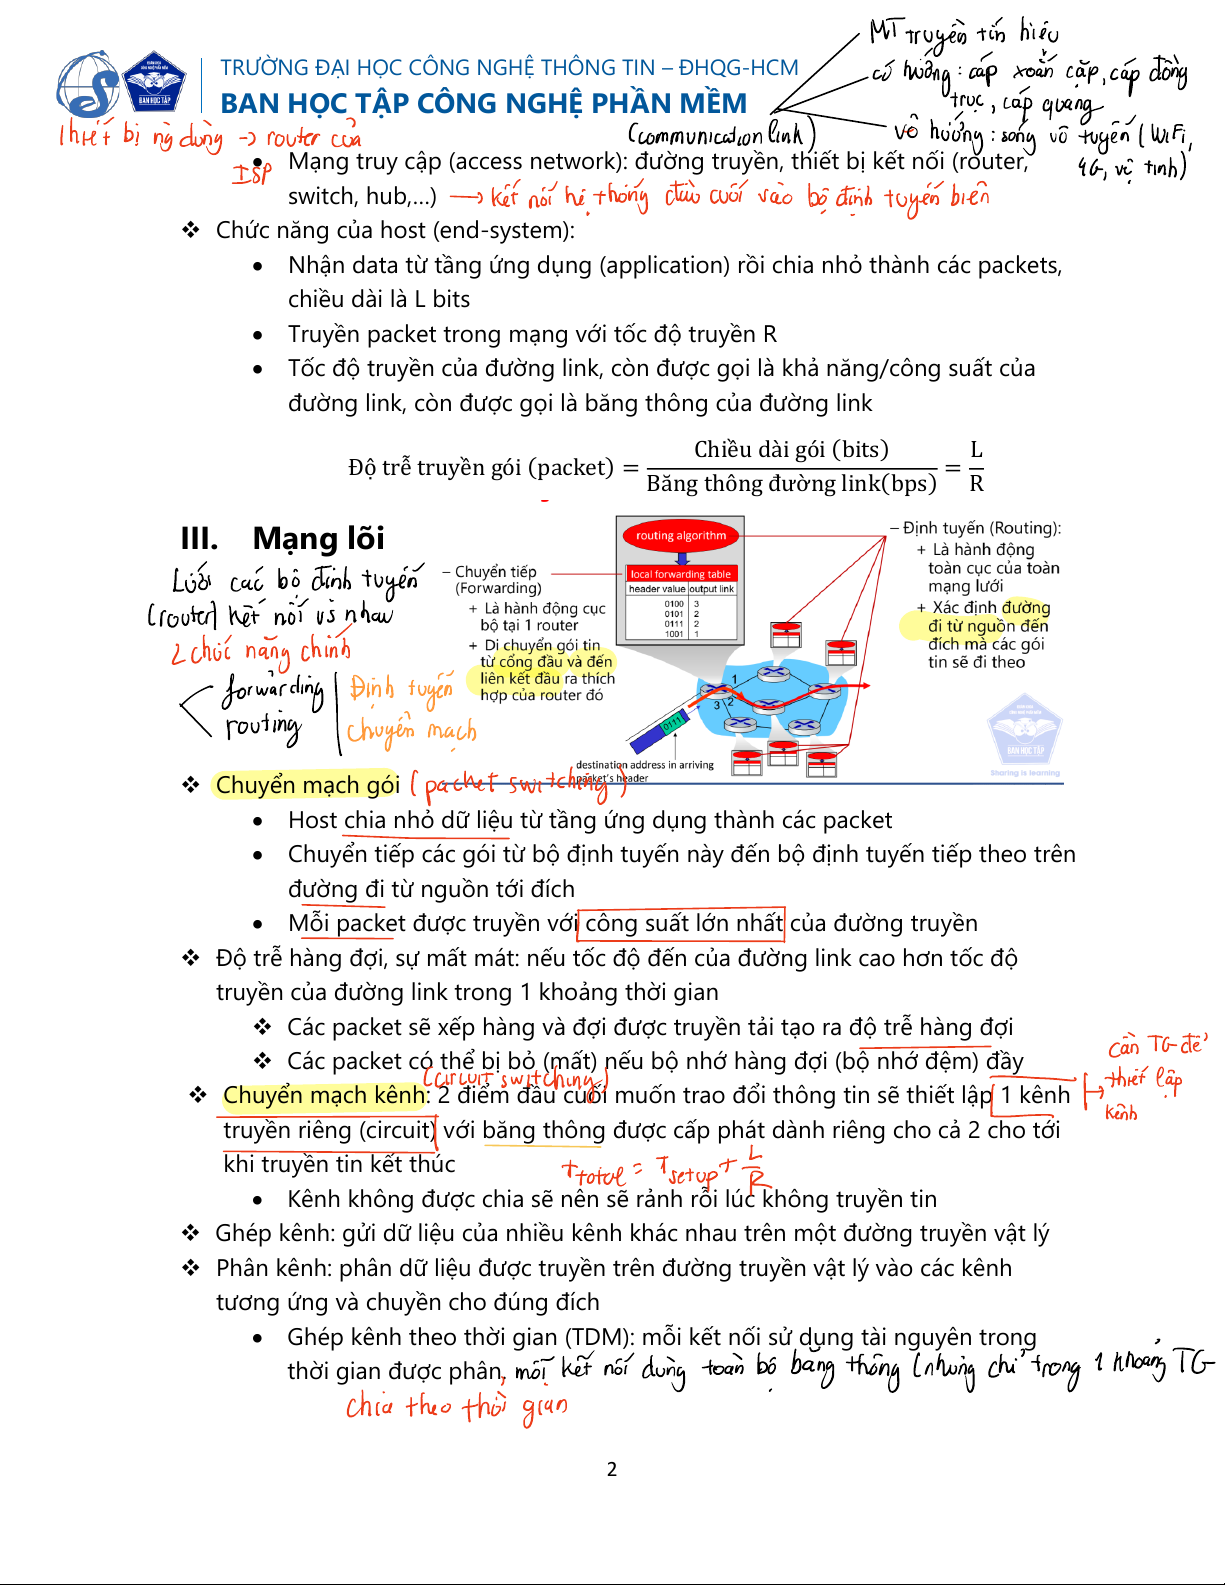 MT truyền tín hiệu
TRƯỜNG ĐẠI HỌC CÔNG NGHỆ THÔNG TIN – ĐHQG-HCM
có hướng: cáp xoắn cặp, cáp đồng
trục, cáp quang
BAN HỌC TẬP CÔNG NGHỆ PHẦN MỀM
BAN HỌC TẬP
(communication link)
vô hướng: sóng vô tuyến (WiFi,
4G, vệ tinh)
Thiết bị ng dùng -> router của
ISP
• Mạng truy cập (access network): đường truyền, thiết bị kết nối (router,
switch, hub,...) → kết nối hệ thống đầu cuối vào bộ định tuyến biên
❖ Chức năng của host (end-system):
• Nhận data từ tầng ứng dụng (application) rồi chia nhỏ thành các packets,
chiều dài là L bits
• Truyền packet trong mạng với tốc độ truyền R
• Tốc độ truyền của đường link, còn được gọi là khả năng/công suất của
đường link, còn được gọi là băng thông của đường link
Độ trễ truyền gói (packet) = Chiều dài gói (bits) / Băng thông đường link(bps) = L / R
III. Mạng lõi
Lưới các bộ định tuyến
(router) kết nối vs nhau
2 chức năng chính
forwarding
routing
Định tuyến
chuyển mạch
– Chuyển tiếp
(Forwarding)
+ Là hành động cục
bộ tại 1 router
+ Di chuyển gói tin
từ cổng đầu và đến
liên kết đầu ra thích
hợp của router đó
routing algorithm
local forwarding table
header value output link
0100 3
0101 2
0111 2
1001 1
1
3 2
0111
destination address in arriving
packet's header
– Định tuyến (Routing):
+ Là hành động
toàn cục của toàn
mạng lưới
+ Xác định đường
đi từ nguồn đến
đích mà các gói
tin sẽ đi theo
BAN HỌC TẬP
Sharing is learning
❖ Chuyển mạch gói (packet switching)
• Host chia nhỏ dữ liệu từ tầng ứng dụng thành các packet
• Chuyển tiếp các gói từ bộ định tuyến này đến bộ định tuyến tiếp theo trên
đường đi từ nguồn tới đích
• Mỗi packet được truyền với công suất lớn nhất của đường truyền
❖ Độ trễ hàng đợi, sự mất mát: nếu tốc độ đến của đường link cao hơn tốc độ
truyền của đường link trong 1 khoảng thời gian
❖ Các packet sẽ xếp hàng và đợi được truyền tải tạo ra độ trễ hàng đợi
❖ Các packet có thể bị bỏ (mất) nếu bộ nhớ hàng đợi (bộ nhớ đệm) đầy
(circuit switching)
❖ Chuyển mạch kênh: 2 điểm đầu cuối muốn trao đổi thông tin sẽ thiết lập 1 kênh
truyền riêng (circuit) với băng thông được cấp phát dành riêng cho cả 2 cho tới
khi truyền tin kết thúc
cần TG để
thiết lập
kênh
T total = T setup + L/R
• Kênh không được chia sẽ nên sẽ rảnh rỗi lúc không truyền tin
❖ Ghép kênh: gửi dữ liệu của nhiều kênh khác nhau trên một đường truyền vật lý
❖ Phân kênh: phân dữ liệu được truyền trên đường truyền vật lý vào các kênh
tương ứng và chuyền cho đúng đích
• Ghép kênh theo thời gian (TDM): mỗi kết nối sử dụng tài nguyên trong
thời gian được phân, mỗi kết nối dùng toàn bộ băng thông (nhưng chỉ trong 1 khoảng TG
chia theo thời gian
2